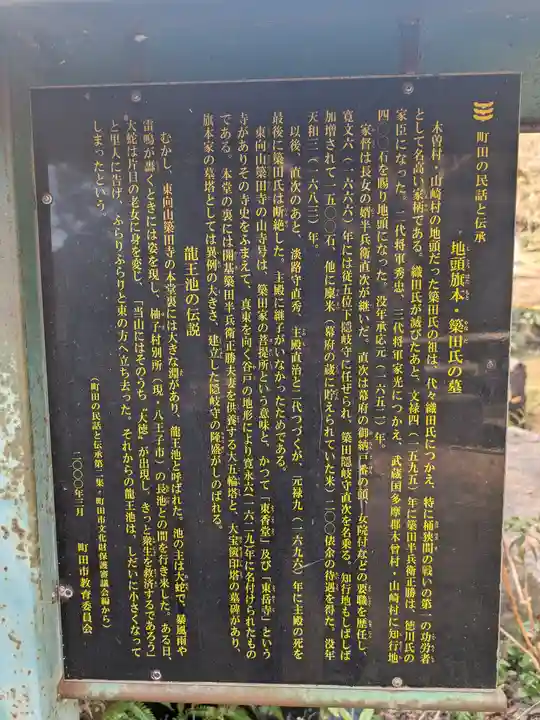 町田の民話と伝承
地頭旗本・築田氏の墓
木曽村・山崎村の地頭だった築田氏の祖は、代々織田氏につかえ、特に桶狭間の戦いの第一の功労者
として名高い家柄である。織田氏が滅びたあと、文禄四(一五九五)年に築田半兵衛正勝は、徳川氏の
家臣になった。二代将軍秀忠、三代将軍家光につかえ、武蔵国多摩郡木曽村・山崎村に知行地
四〇〇石を賜り地頭になった。没年承応元(一六五二)年。
家督は長女の婿半兵衛直次が継いだ。直次は幕府の御納戸番の頭、女院付などの要職を歴任し、
寛文六(一六六六)年には従五位下隠岐守に任ぜられ、築田隠岐守直次を名乗る。知行地もしばしば
加増されて一五〇〇石、他に廩米(幕府の蔵に貯えられていた米)二〇〇俵余の待遇を得た。没年
天和三(一六八三)年。
以後、直次のあと、淡路守直秀、主殿直治と二代つづくが、元禄九(一六九六)年に主殿の死を
最後に築田氏は断絶した。主殿に継子がいなかったためである。
東向山築田寺の山寺号は、築田家の菩提所という意味と、かつて「東香堂」及び「東岳寺」という
寺がありその寺史をふまえて、真東を向く谷戸の地形により寛永六(一六二九)年に名付けられたもの
である。本堂の裏には開基築田半兵衛正勝夫妻を供養する大五輪塔と、大宝篋印塔の墓碑があり、
旗本家の墓塔としては異例の大きさ、建立した隠岐守の隆盛がしのばれる。
龍王池の伝説
むかし、東向山築田寺の本堂裏には大きな淵があり、龍王池と呼ばれた。池の主は大蛇で、暴風雨や
雷鳴が轟くときには姿を現し、柚子村別所(現・八王子市)の長池との間を行き来した。ある日、
大蛇は片目の老女に身を変じ、「当山にはそのうち〝大徳〟が出現し、きっと衆生を救済するであろう」
と里人に告げ、ふらりふらりと東の方へ立ち去った。それからの龍王池は、しだいに小さくなって
しまったという。
(町田の民話と伝承第二集・町田市文化財保護審議会編から)
二〇〇〇年二月
町田市教育委員会